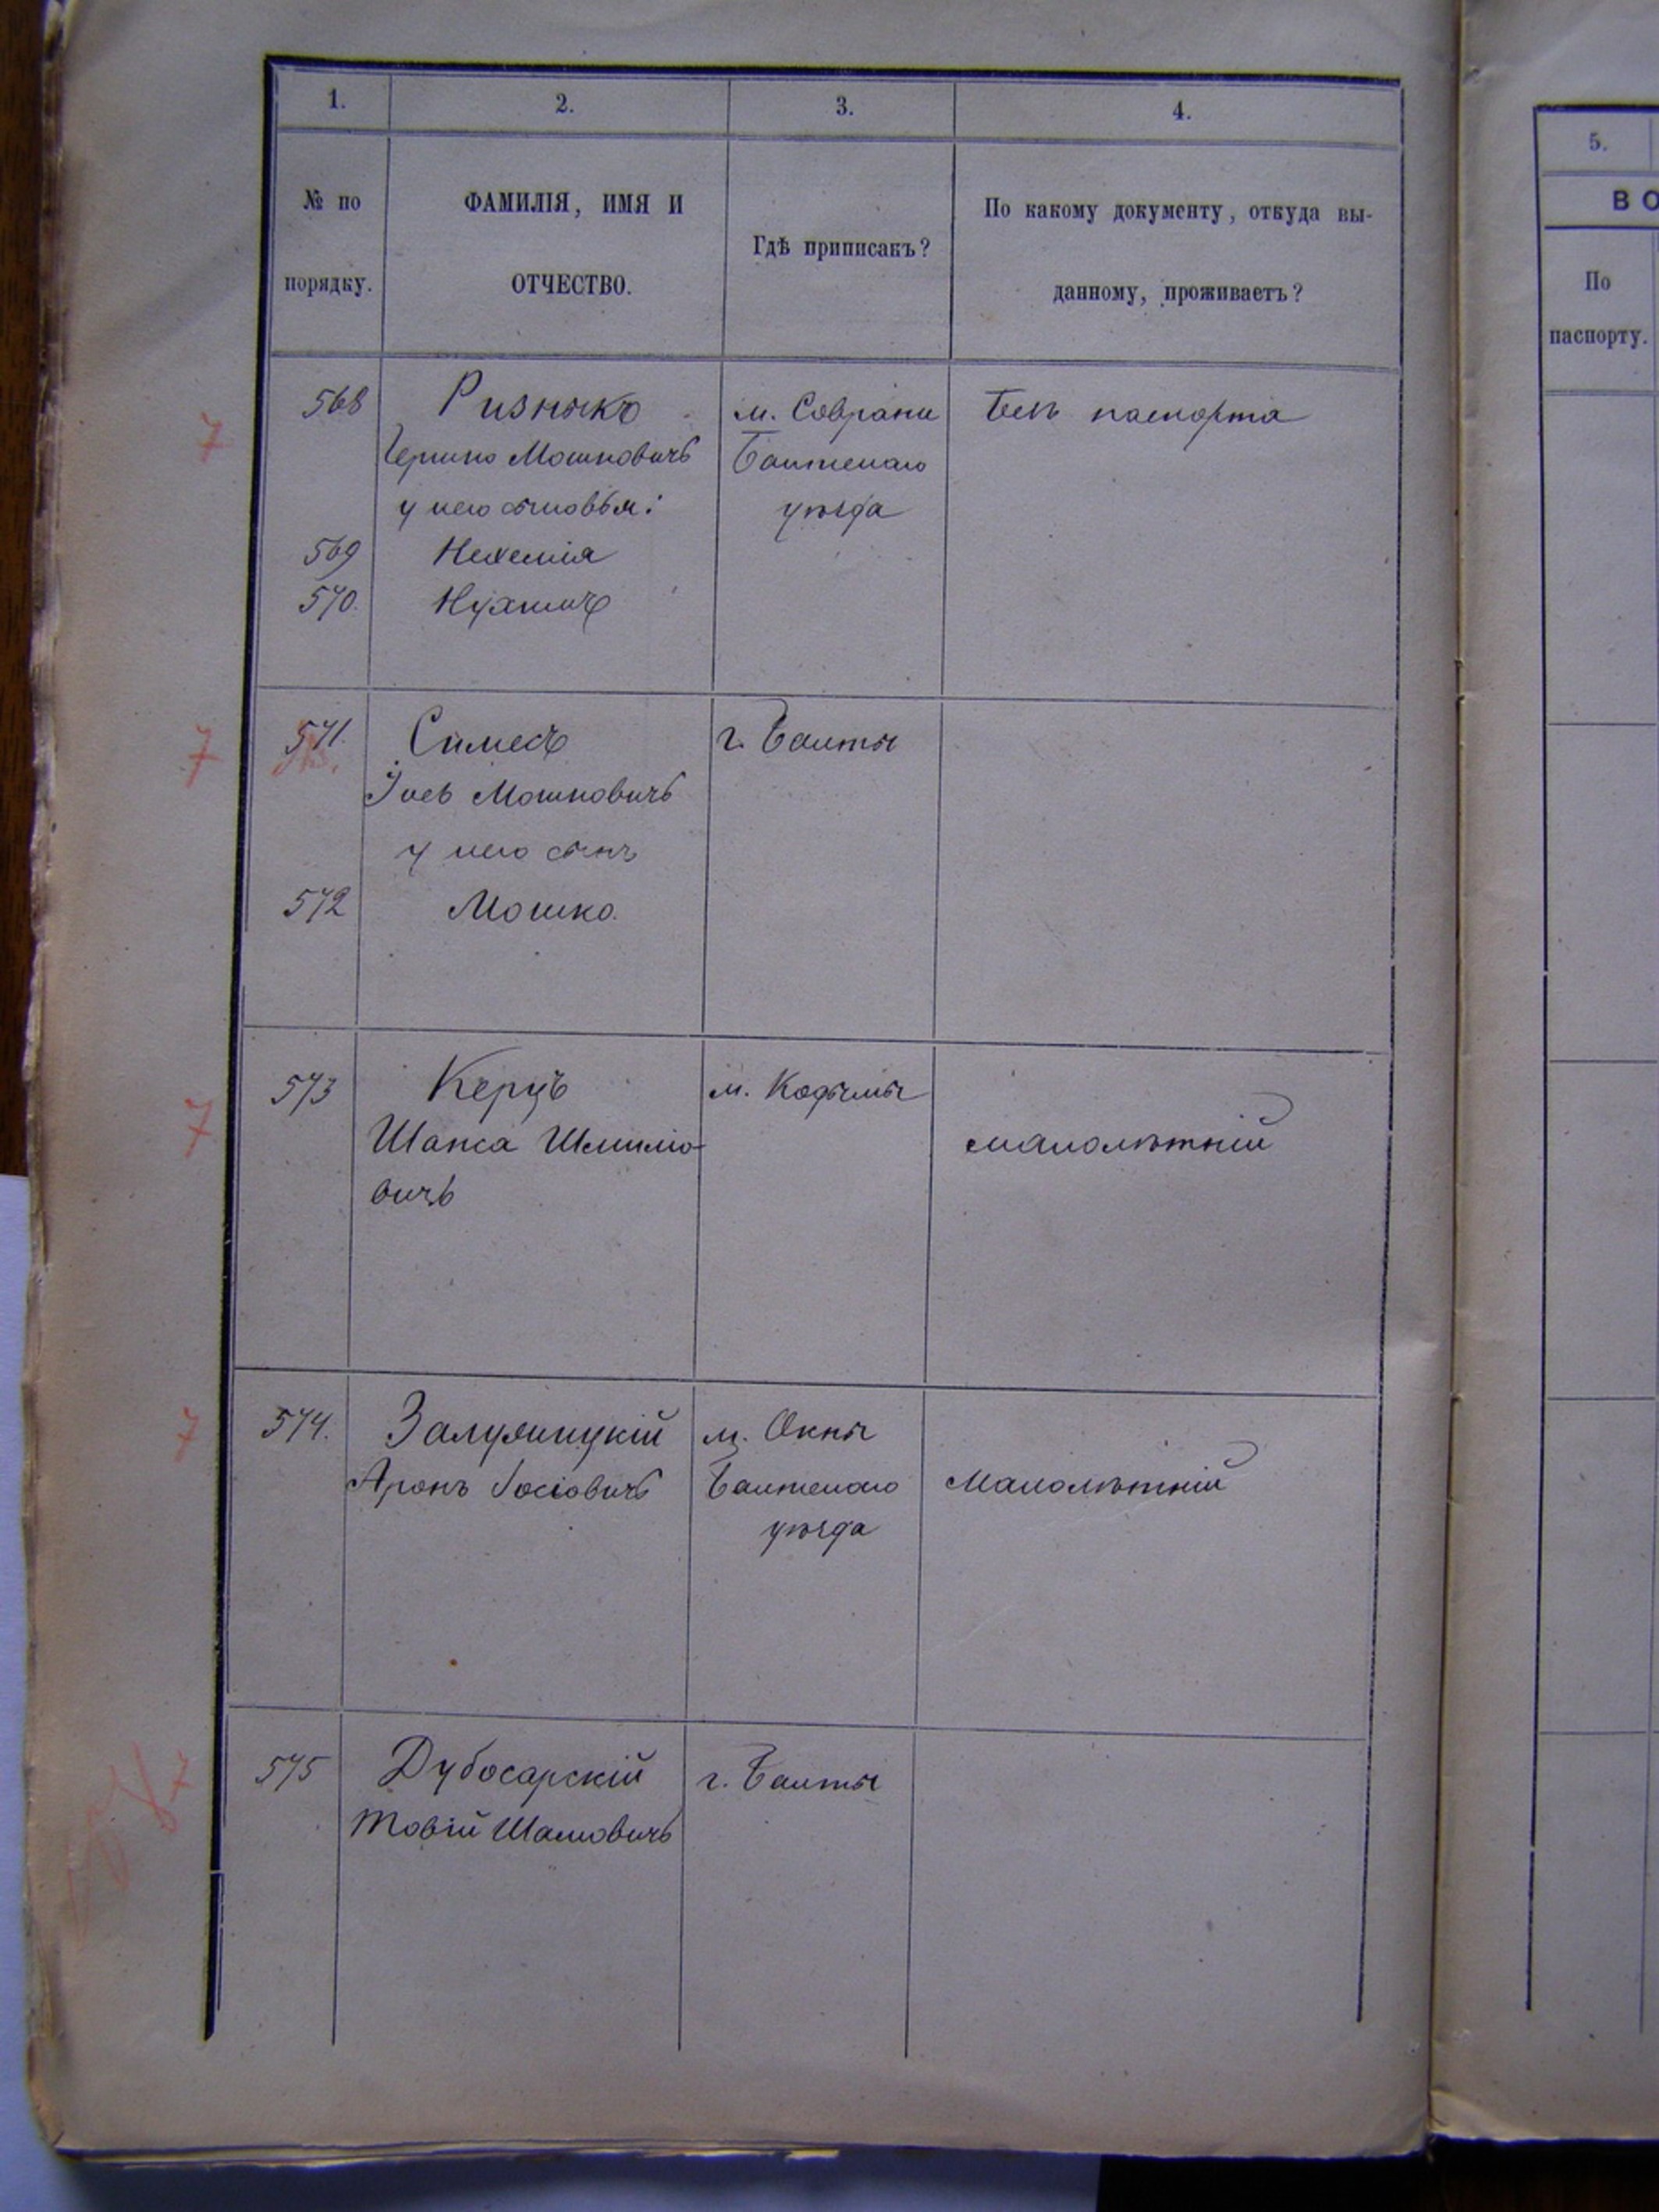 1.
2.
3.
4.
№ по
порядку.
ФАМИЛІЯ, ИМЯ И
ОТЧЕСТВО.
Гдѣ приписанъ?
По какому документу, откуда вы-
данному, проживаетъ?
568
Ризныкъ
Мошковичъ
у него сыновья:
м. Саврани
Балтскаго
уѣзда
Безъ паспорта
569
Нехемія
570.
Нухимъ
571.
Симесъ
Іось Мошковичъ
у него сынъ
г. Балты
572
Мошко.
573
Керцъ
Шапса Шмилю-
вичъ
м. Кодымы
малолѣтній
574.
Аронъ Іосіовичъ
м. Окны
Балтскаго
уѣзда
Малолѣтній
575
Дубосарскій
Товій
г. Балты
7
7
7
7
7
5.
ВО
По
паспорту.